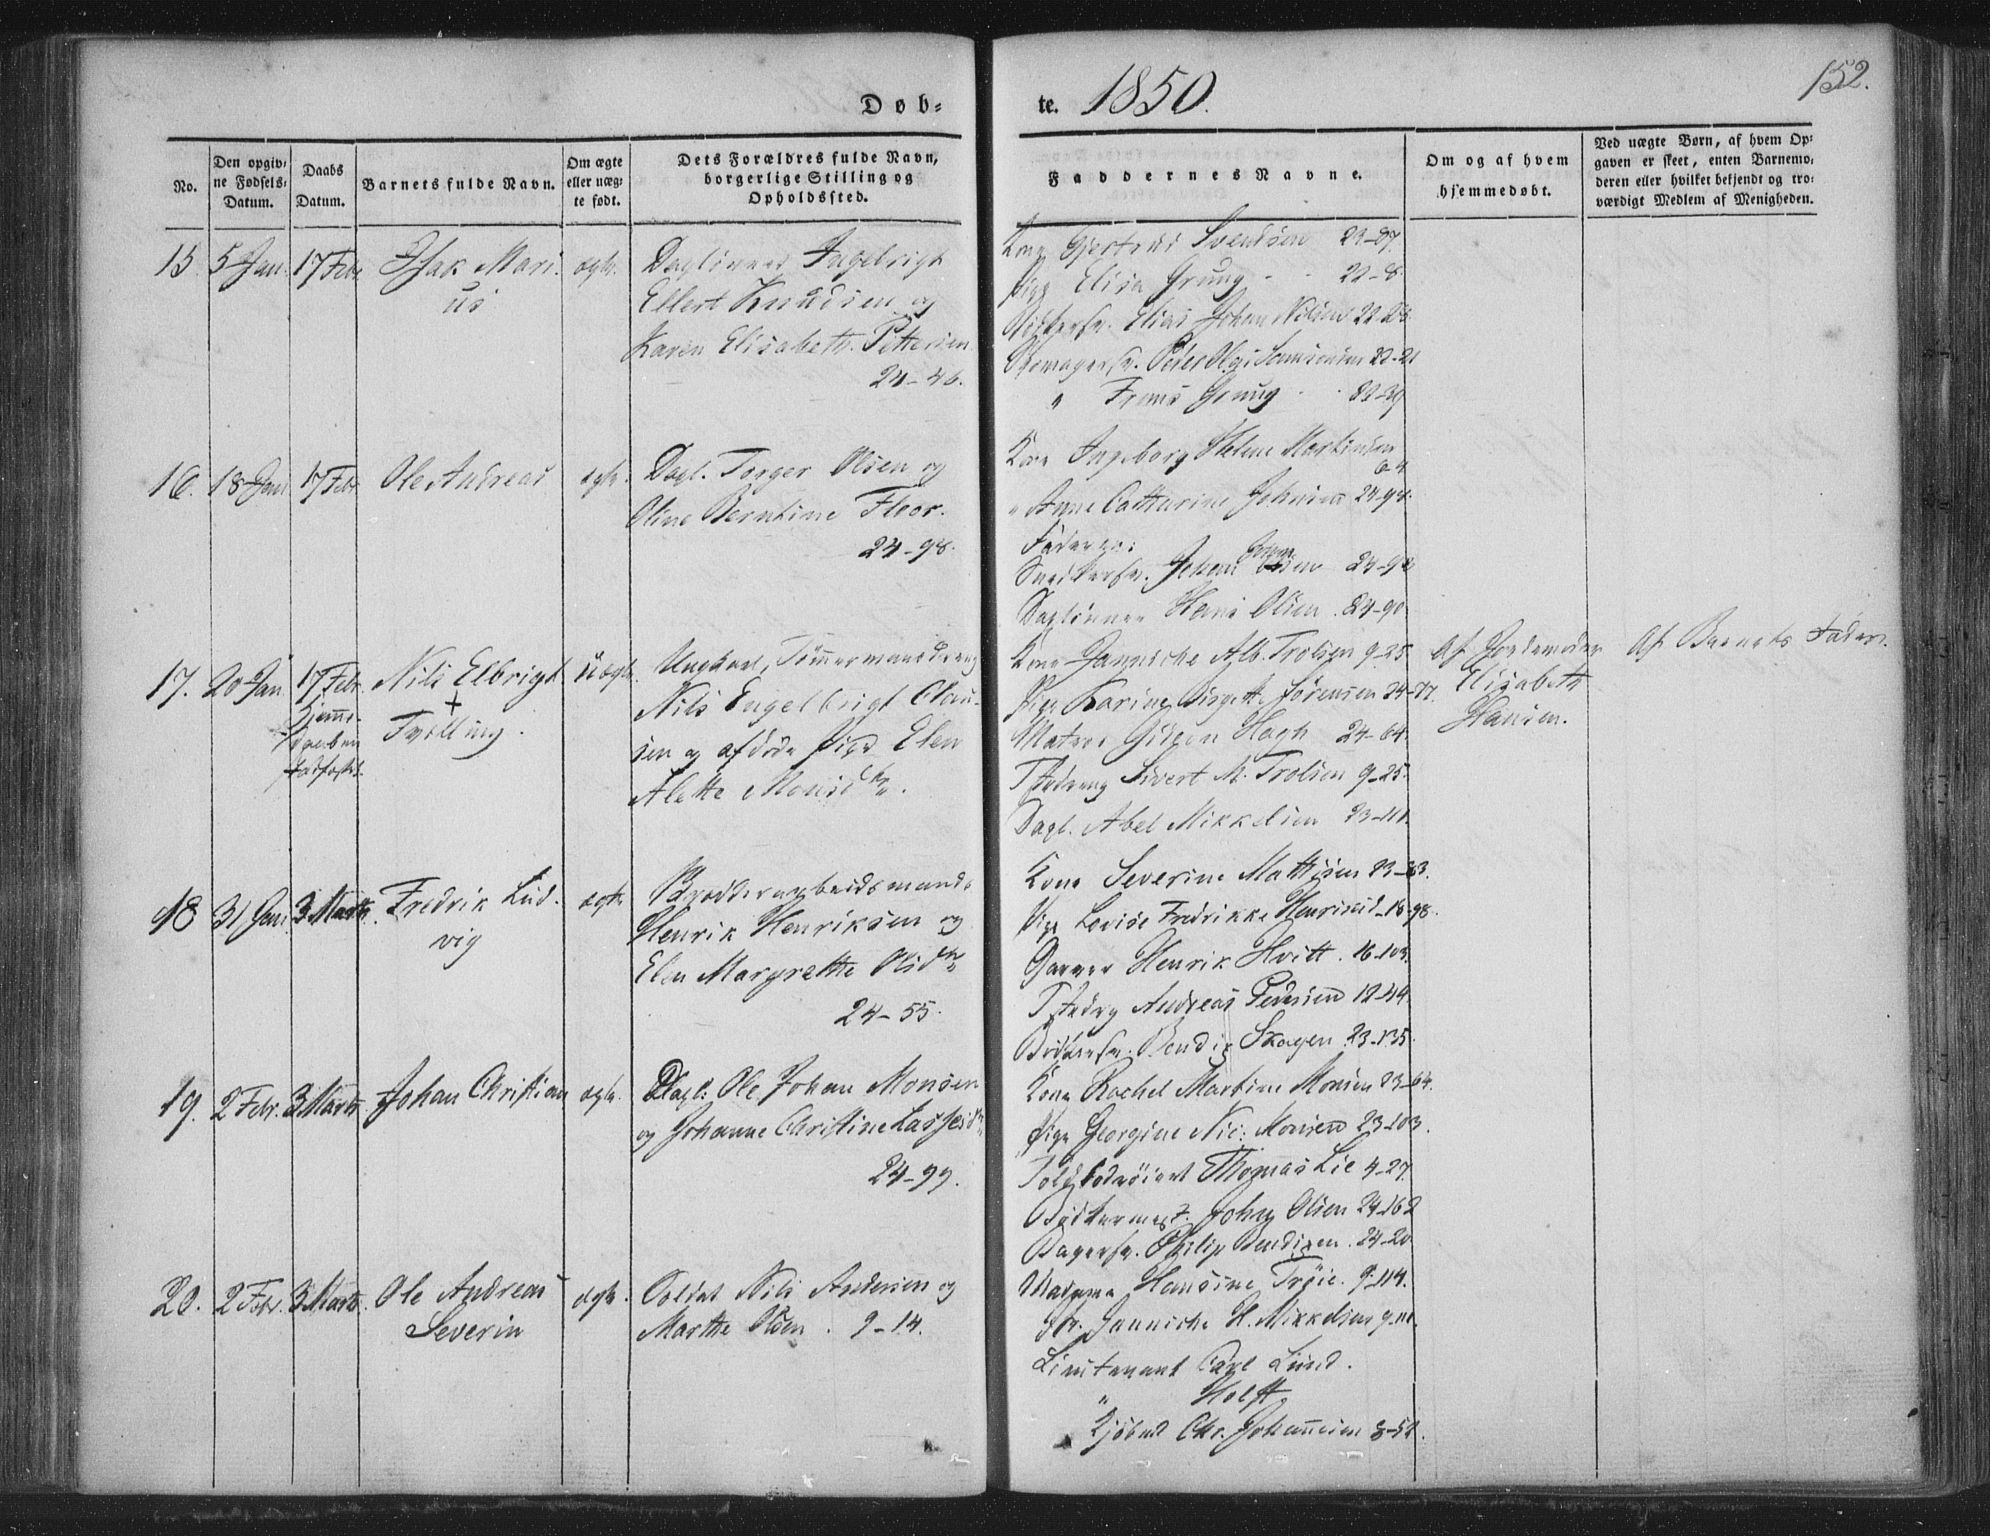 152.
Døb-
te. 1850.
No.
Den opgiv-
ne Fødsels-
Datum.
Daabs
Datum.
Barnets fulde Navn.
Om ægte
eller uæg-
te født.
Dets Forældres fulde Navn,
borgerlige Stilling og
Opholdssted.
Faddernes Navne.
Om og af hvem
hjemmedøbt.
Ved uægte Børn, af hvem Op-
gaven er skeet, enten Barnemo-
deren eller hvilket bekjendt og tro-
værdigt Medlem af Menigheden.
15. 5 Jan. 17 Febr. Isak Mari-
us
ægte.
Daglönner Ingebrigt
Ellert Knudsen og
Karen Elisabeth Pettersen
24-46.
Kone Gjertrud Svendsen 23-87.
Pige Elisa Grung 22-8.
Elias Johan Nilsen
Peder
Frans Grung
16. 18 Jan 17 Febr. Ole Andreas ægte.
Dagl. Torger Olsen og
Oline Berntine Floor.
24-98.
Kone Ingeborg Helene Martinsen
" Anne Catharine Johnsen 24-98.
Faderen:
Snedkersv. Johan
Daglönner Hans Olsen. 24-90.
17. 20 Jan 17 Febr. Nils Elbrigt
+
Tvilling.
uægte.
Ungkarl, Tömmermandsdreng
Nils Engelbrigt Clau-
sen og afdöde Pige Elen
Alette Monsdtr.
Kone Jannicke Alb. Trolsen 9-25
Pige Karine Sörensen 24-77.
Matros Hagh 24-64.
Sivert M. Trolsen 9-25.
Dagl. Abel Mikkelsen 23-111.
Af Jordemoder
Elisabeth
Hansen.
Af Barnets Fader.
18 31 Jan. 3 Marts. Fredrik Lud-
vig
ægte.
Henrik Henriksen og
Elen Margrethe Olsdtr
24-55.
Kone Severine Mathisen 23-83.
Pige Lovise Fredrikke Henriksd. 18-98.
Garver Henrik Hvitt. 16-103.
Andreas Pedersen 12-49.
Bödkersv. Bendix Skagen 23-135.
19. 2 Febr. 3 Marts Johan Christian ægte.
Dagl: Ole Johan Monsen
og Johanne Christine Lassesdtr
24-99.
Kone Rachel Martine Monsen 23-64.
Pige Georgine Nic: Monsen 23-103.
Thomas Lie 4-27.
Bödkermest. Johan Olsen 24-162
Bagersv. Philip Bendixen. 24-20.
20. 2 Febr. 3 Marts. Ole Andreas
Severin
ægte.
Soldat Nils Andersen og
Marthe Olsen. 9-14.
Madame Hansine Tröie. 9-114.
Jfr. Jannicke H. Mikkelsen
Lieutenant Carl Lund.
" Holst
Kjöbmd Chr. Johannesen 8-51.